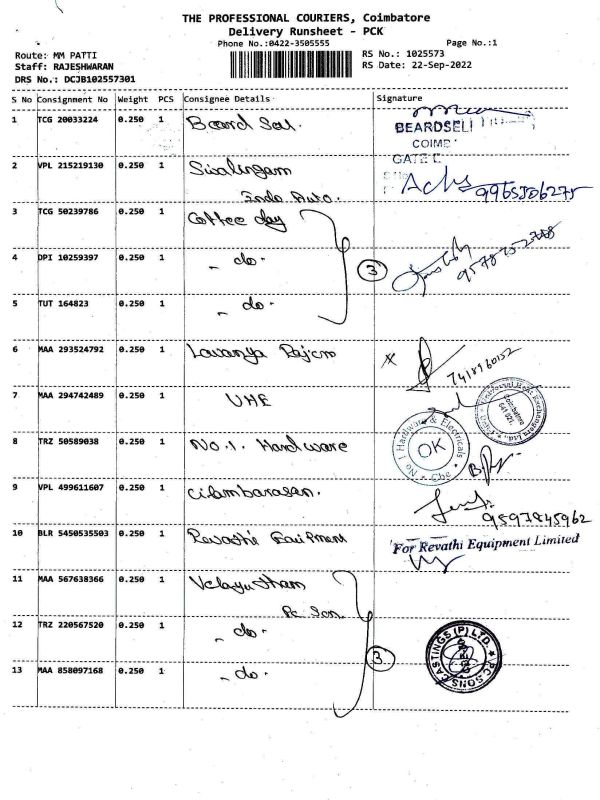 THE PROFESSIONAL COURIERS, Coimbatore
Delivery Runsheet - PCK
Phone No.:0422-3505555 Page No.:1
Route: MM PATTI RS No.: 1025573
Staff: RAJESHWARAN RS Date: 22-Sep-2022
DRS No.: DCJB102557301
S No Consignment No Weight PCS Consignee Details Signature
1 TCG 20033224 0.250 1 Beard Sel.
BEARDSELL
COIMB
GATE
2 VPL 215219130 0.250 1 Sivalingam
Endo Auto.
9965886275
3 TCG 50239786 0.250 1 Coffee day
4 DPI 10259397 0.250 1 - do - 3
5 TUT 164823 0.250 1 - do -
6 MAA 293524792 0.250 1 Lavanya Rajem x
7418960152
7 MAA 294742489 0.250 1 UHE
Universal Heat Exchangers Ltd.,
Coimbatore
641 021.
8 TRZ 50589038 0.250 1 No.1. Hardware
No 1 Hardware & Electricals
OK
Cbe
9 VPL 499611607 0.250 1 Cilambarasan.
9597845962
10 BLR 5450535503 0.250 1 Revathi Equipment
For Revathi Equipment Limited
11 MAA 567638366 0.250 1 Velayutham
Pc Son
12 TRZ 220567520 0.250 1 - do - 3
13 MAA 858097168 0.250 1 - do -
P.C.SONS CASTINGS (P) LTD.